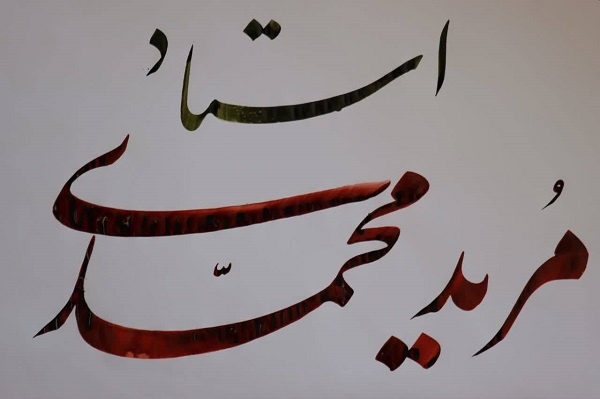 استاد
مُرید محمّدی